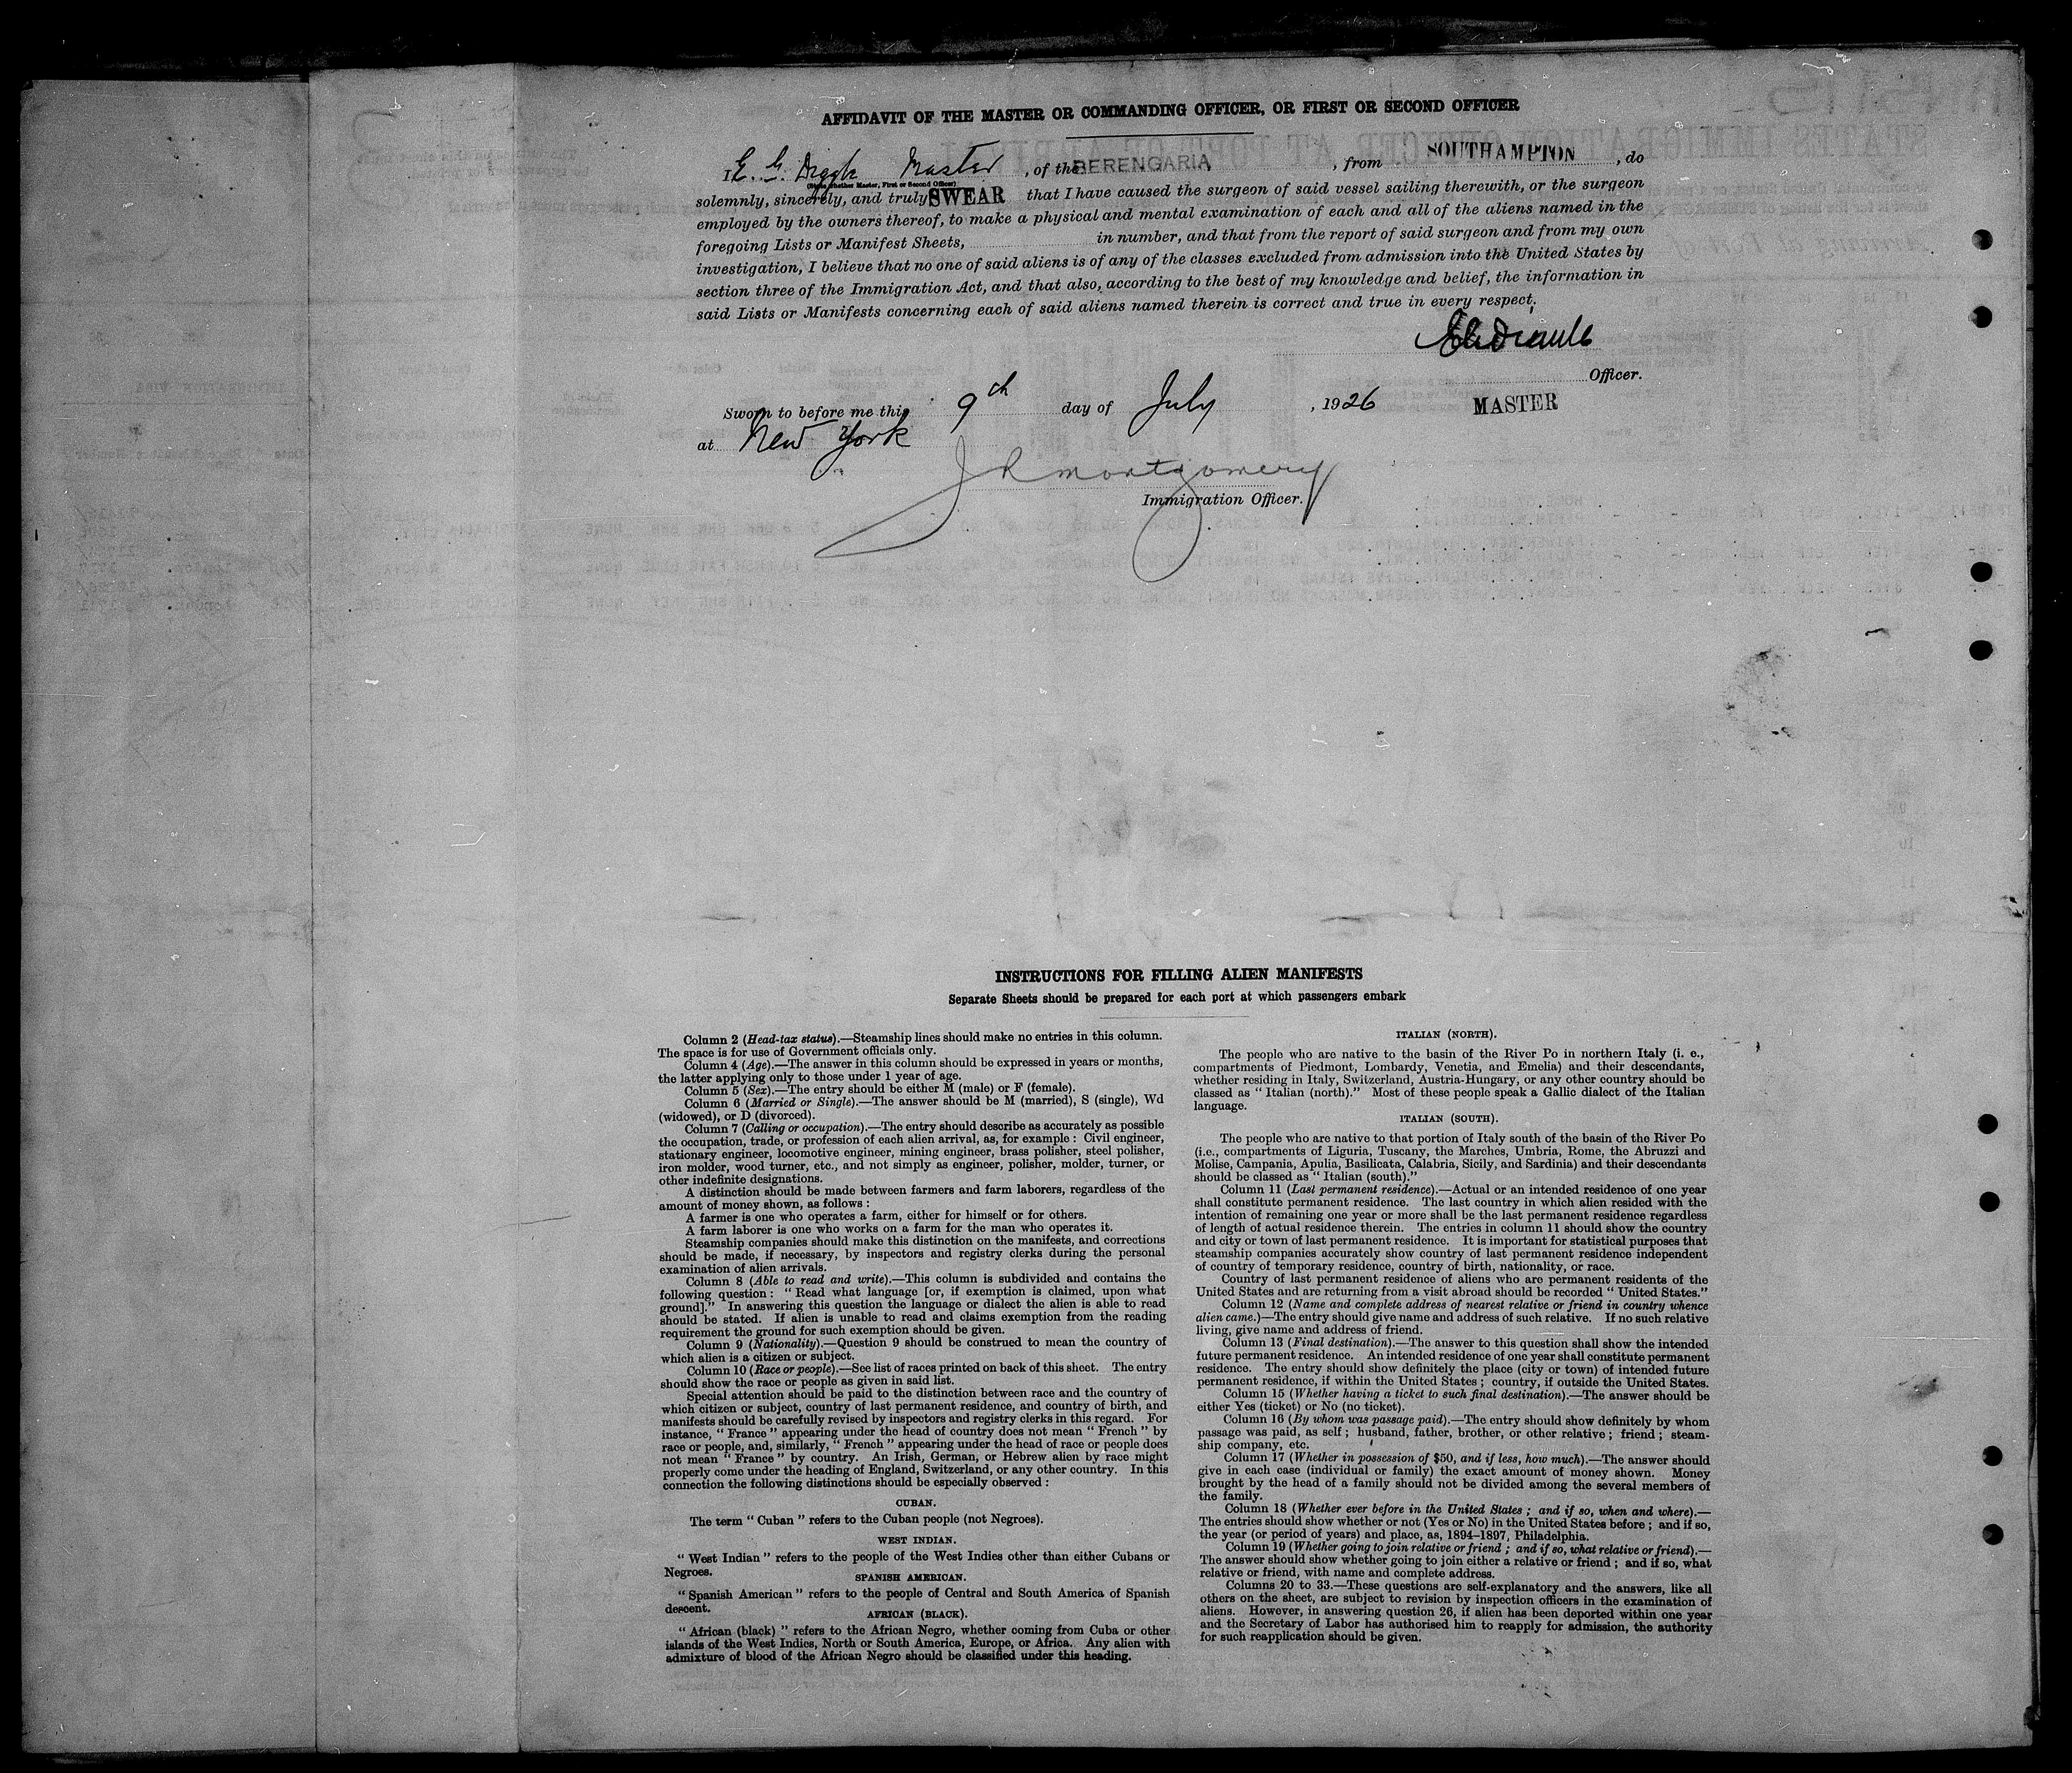 AFFIDAVIT OF THE MASTER OR COMMANDING OFFICER, OR FIRST OR SECOND OFFICER
I E. G. Diggle Master, of the BERENGARIA, from SOUTHAMPTON, do
(State whether Master, First or Second Officer)
solemnly, sincerely, and truly SWEAR that I have caused the surgeon of said vessel sailing therewith, or the surgeon
employed by the owners thereof, to make a physical and mental examination of each and all of the aliens named in the
foregoing Lists or Manifest Sheets, in number, and that from the report of said surgeon and from my own
investigation, I believe that no one of said aliens is of any of the classes excluded from admission into the United States by
section three of the Immigration Act, and that also, according to the best of my knowledge and belief, the information in
said Lists or Manifests concerning each of said aliens named therein is correct and true in every respect.
Officer.
Sworn to before me this 9th day of July, 1926 MASTER
at New York
J R Montgomery
Immigration Officer.
INSTRUCTIONS FOR FILLING ALIEN MANIFESTS
Separate Sheets should be prepared for each port at which passengers embark
Column 2 (Head-tax status).—Steamship lines should make no entries in this column.
The space is for use of Government officials only.
Column 4 (Age).—The answer in this column should be expressed in years or months,
the latter applying only to those under 1 year of age.
Column 5 (Sex).—The entry should be either M (male) or F (female).
Column 6 (Married or Single).—The answer should be M (married), S (single), Wd
(widowed), or D (divorced).
Column 7 (Calling or occupation).—The entry should describe as accurately as possible
the occupation, trade, or profession of each alien arrival, as, for example : Civil engineer,
stationary engineer, locomotive engineer, mining engineer, brass polisher, steel polisher,
iron molder, wood turner, etc., and not simply as engineer, polisher, molder, turner, or
other indefinite designations.
A distinction should be made between farmers and farm laborers, regardless of the
amount of money shown, as follows :
A farmer is one who operates a farm, either for himself or for others.
A farm laborer is one who works on a farm for the man who operates it.
Steamship companies should make this distinction on the manifests, and corrections
should be made, if necessary, by inspectors and registry clerks during the personal
examination of alien arrivals.
Column 8 (Able to read and write).—This column is subdivided and contains the
following question : “ Read what language [or, if exemption is claimed, upon what
ground].” In answering this question the language or dialect the alien is able to read
should be stated. If alien is unable to read and claims exemption from the reading
requirement the ground for such exemption should be given.
Column 9 (Nationality).—Question 9 should be construed to mean the country of
which alien is a citizen or subject.
Column 10 (Race or people).—See list of races printed on back of this sheet. The entry
should show the race or people as given in said list.
Special attention should be paid to the distinction between race and the country of
which citizen or subject, country of last permanent residence, and country of birth, and
manifests should be carefully revised by inspectors and registry clerks in this regard. For
instance, “ France ” appearing under the head of country does not mean “ French ” by
race or people, and, similarly, “ French ” appearing under the head of race or people does
not mean “ France ” by country. An Irish, German, or Hebrew alien by race might
properly come under the heading of England, Switzerland, or any other country. In this
connection the following distinctions should be especially observed :
CUBAN.
The term “ Cuban ” refers to the Cuban people (not Negroes).
WEST INDIAN.
“ West Indian ” refers to the people of the West Indies other than either Cubans or
Negroes.
SPANISH AMERICAN.
“ Spanish American ” refers to the people of Central and South America of Spanish
descent.
AFRICAN (BLACK).
“ African (black) ” refers to the African Negro, whether coming from Cuba or other
islands of the West Indies, North or South America, Europe, or Africa. Any alien with
admixture of blood of the African Negro should be classified under this heading.
ITALIAN (NORTH).
The people who are native to the basin of the River Po in northern Italy (i. e.,
compartments of Piedmont, Lombardy, Venetia, and Emelia) and their descendants,
whether residing in Italy, Switzerland, Austria-Hungary, or any other country should be
classed as “ Italian (north).” Most of these people speak a Gallic dialect of the Italian
language.
ITALIAN (SOUTH).
The people who are native to that portion of Italy south of the basin of the River Po
(i.e., compartments of Liguria, Tuscany, the Marches, Umbria, Rome, the Abruzzi and
Molise, Campania, Apulia, Basilicata, Calabria, Sicily, and Sardinia) and their descendants
should be classed as “ Italian (south).”
Column 11 (Last permanent residence).—Actual or an intended residence of one year
shall constitute permanent residence. The last country in which alien resided with the
intention of remaining one year or more shall be the last permanent residence regardless
of length of actual residence therein. The entries in column 11 should show the country
and city or town of last permanent residence. It is important for statistical purposes that
steamship companies accurately show country of last permanent residence independent
of country of temporary residence, country of birth, nationality, or race.
Country of last permanent residence of aliens who are permanent residents of the
United States and are returning from a visit abroad should be recorded “ United States.”
Column 12 (Name and complete address of nearest relative or friend in country whence
alien came.)—The entry should give name and address of such relative. If no such relative
living, give name and address of friend.
Column 13 (Final destination).—The answer to this question shall show the intended
future permanent residence. An intended residence of one year shall constitute permanent
residence. The entry should show definitely the place (city or town) of intended future
permanent residence, if within the United States ; country, if outside the United States.
Column 15 (Whether having a ticket to such final destination).—The answer should be
either Yes (ticket) or No (no ticket).
Column 16 (By whom was passage paid).—The entry should show definitely by whom
passage was paid, as self ; husband, father, brother, or other relative ; friend ; steam-
ship company, etc.
Column 17 (Whether in possession of $50, and if less, how much).—The answer should
give in each case (individual or family) the exact amount of money shown. Money
brought by the head of a family should not be divided among the several members of
the family.
Column 18 (Whether ever before in the United States ; and if so, when and where).—
The entries should show whether or not (Yes or No) in the United States before ; and if so,
the year (or period of years) and place, as, 1894–1897, Philadelphia.
Column 19 (Whether going to join relative or friend ; and if so, what relative or friend).—
The answer should show whether going to join either a relative or friend ; and if so, what
relative or friend, with name and complete address.
Columns 20 to 33.—These questions are self-explanatory and the answers, like all
others on the sheet, are subject to revision by inspection officers in the examination of
aliens. However, in answering question 26, if alien has been deported within one year
and the Secretary of Labor has authorised him to reapply for admission, the authority
for such reapplication should be given.